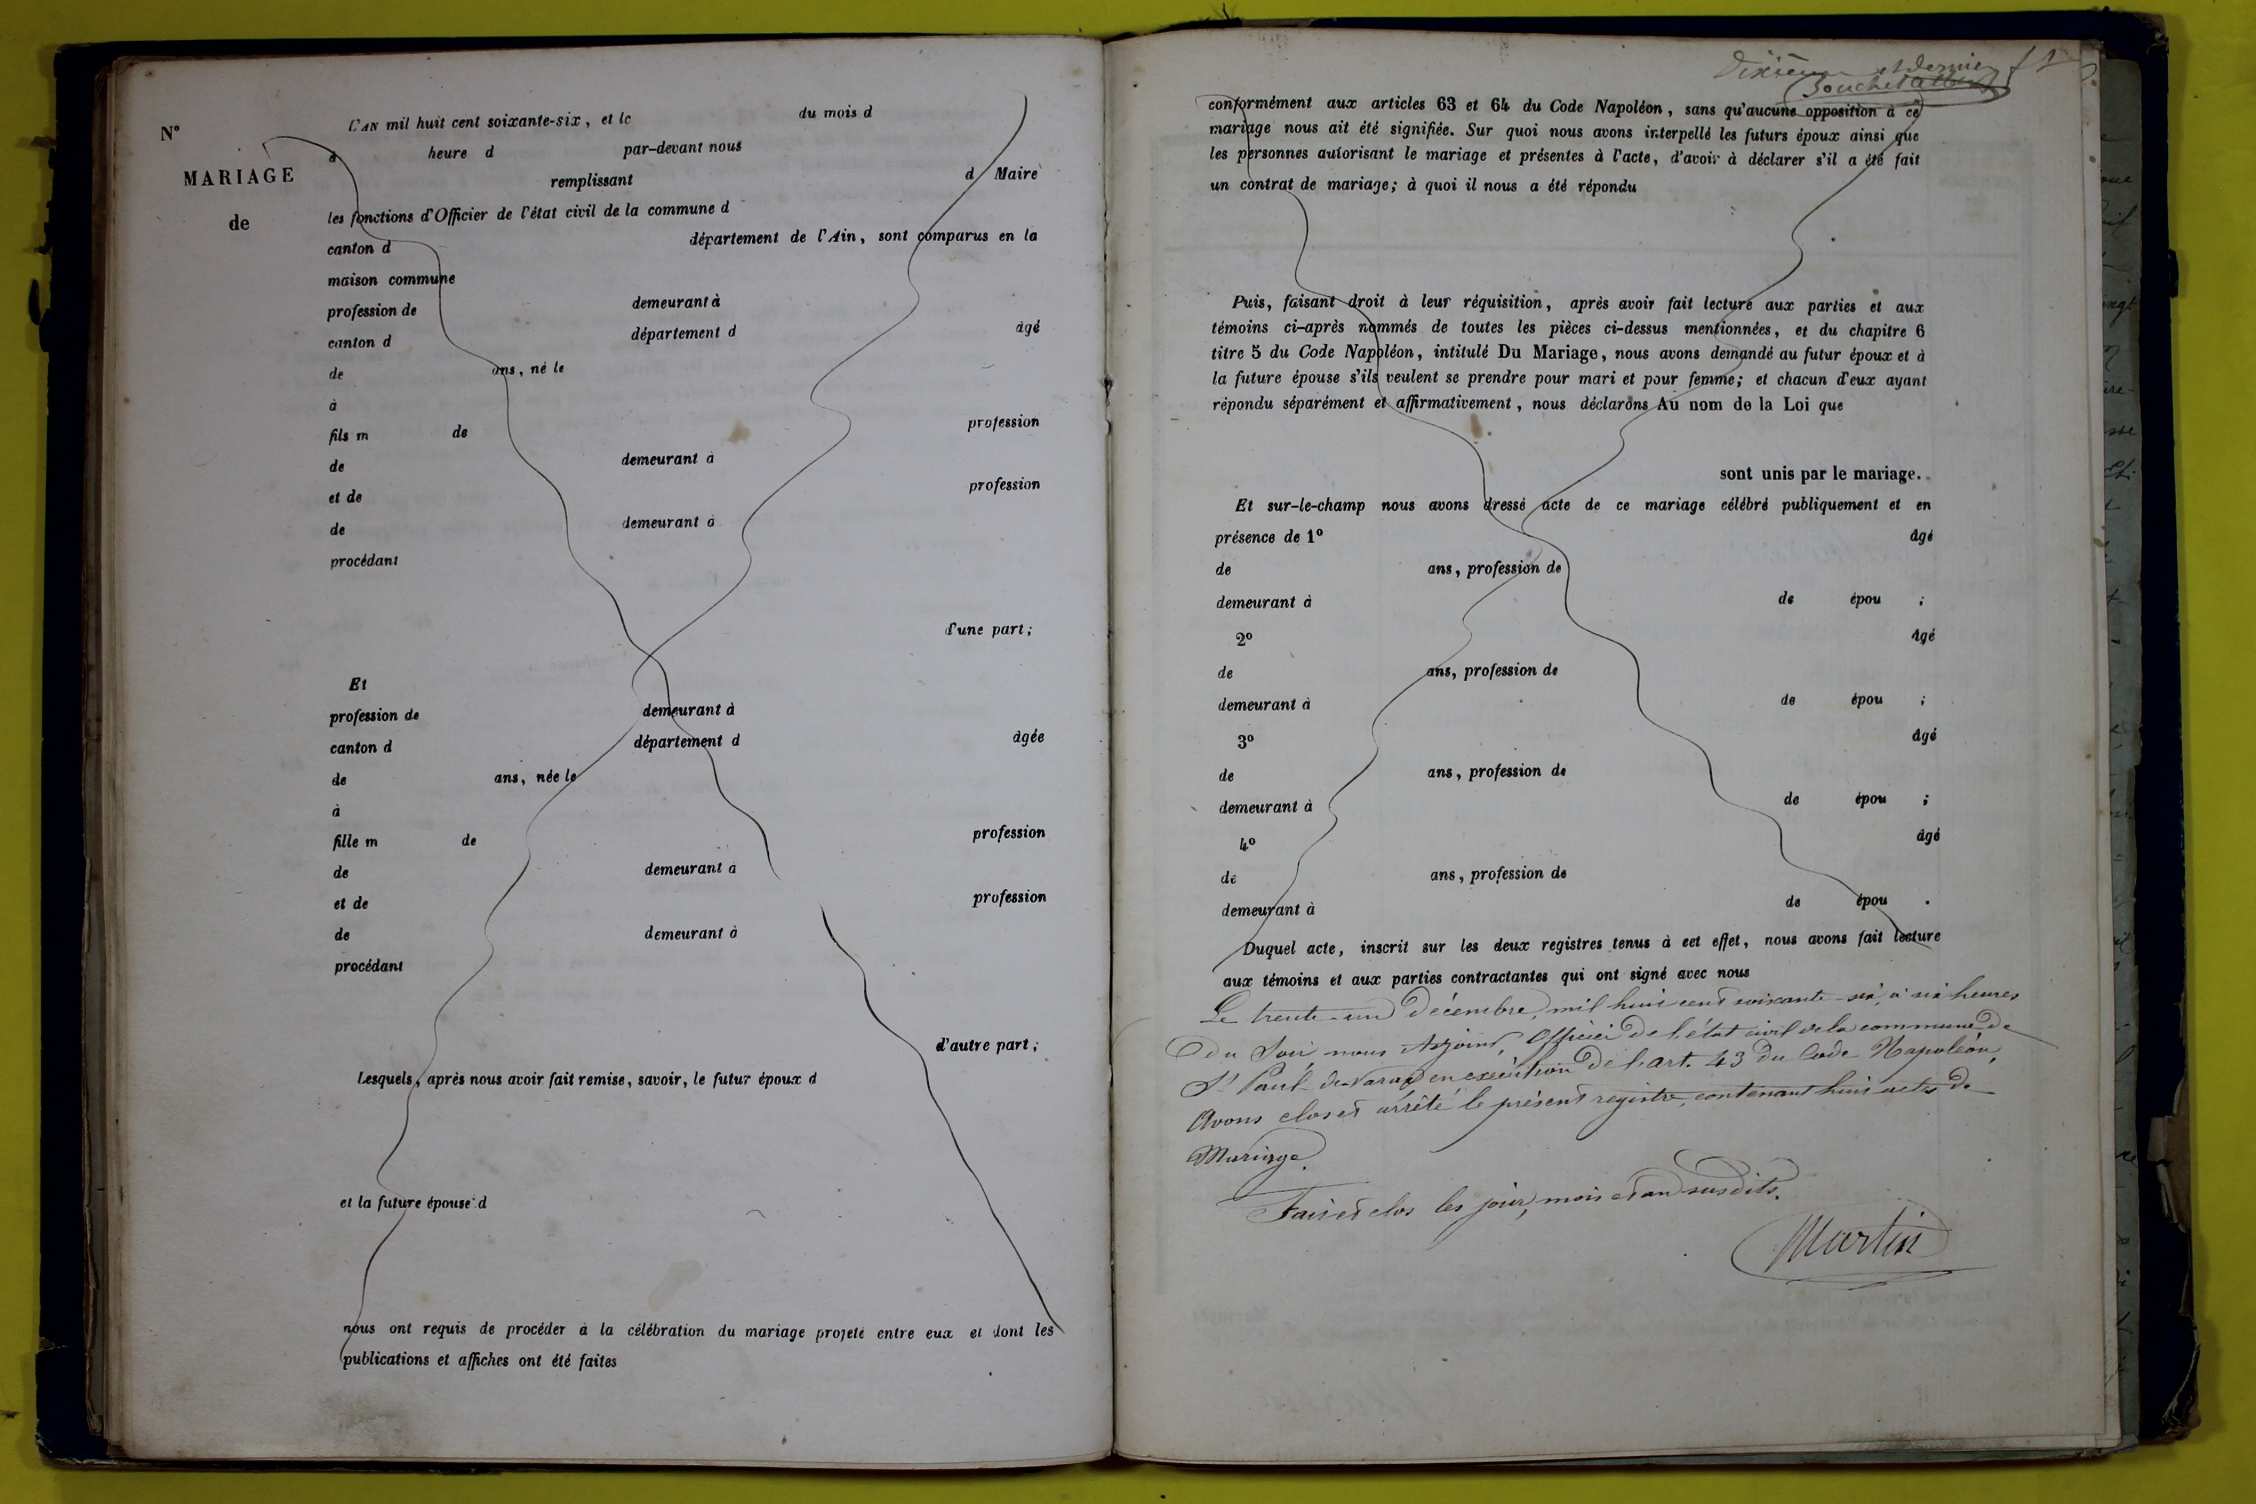 N°
MARIAGE
de
L'AN mil huit cent soixante-six, et le du mois d
à heure d par-devant nous
remplissant d Maire
les fonctions d'Officier de l'état civil de la commune d
canton d département de l'Ain, sont comparus en la
maison commune
profession de demeurant à
canton d département d âgé
de ans, né le
à
fils m de profession
de demeurant à
et de profession
de demeurant à
procédant
d'une part;
Et
profession de demeurant à
canton d département d âgée
de ans, née le
à
fille m de profession
de demeurant à
et de profession
de demeurant à
procédant
d'autre part;
Lesquels, après nous avoir fait remise, savoir, le futur époux d
et la future épouse d
nous ont requis de procéder à la célébration du mariage projeté entre eux et dont les
publications et affiches ont été faites
Dixième et dernier f
conformément aux articles 63 et 64 du Code Napoléon, sans qu'aucune opposition à ce
mariage nous ait été signifiée. Sur quoi nous avons interpellé les futurs époux ainsi que
les personnes autorisant le mariage et présentes à l'acte, d'avoir à déclarer s'il a été fait
un contrat de mariage; à quoi il nous a été répondu
Puis, faisant droit à leur réquisition, après avoir fait lecture aux parties et aux
témoins ci-après nommés de toutes les pièces ci-dessus mentionnées, et du chapitre 6
titre 5 du Code Napoléon, intitulé Du Mariage, nous avons demandé au futur époux et à
la future épouse s'ils veulent se prendre pour mari et pour femme; et chacun d'eux ayant
répondu séparément et affirmativement, nous déclarons Au nom de la Loi que
sont unis par le mariage.
Et sur-le-champ nous avons dressé acte de ce mariage célébré publiquement et en
présence de 1° âgé
de ans, profession de
demeurant à de épou ;
2° âgé
de ans, profession de
demeurant à de épou ;
3° âgé
de ans, profession de
demeurant à de épou ;
4° âgé
de ans, profession de
demeurant à de épou .
Duquel acte, inscrit sur les deux registres tenus à cet effet, nous avons fait lecture
aux témoins et aux parties contractantes qui ont signé avec nous
Le trente-un Décembre, mil huit cent soixante-six, à six heures
du Soir nous Adjoint, Officier de l'état civil de la commune de
St Paul-de-Varax en exécution de l'art. 43 du Code Napoléon,
Avons clos et arrêté le présent registre, contenant huit actes de
Mariage.
Fait et clos les jour, mois et an susdits.
Martin